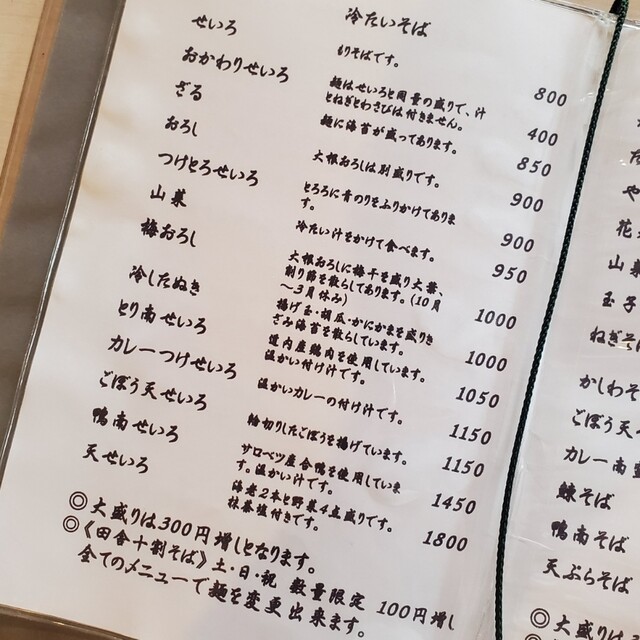 冷たいそば
せいろ もりそばです。 800
おかわりせいろ 麺はせいろと同量の盛りで、汁
とねぎとわさびは付きません。 400
ざる 麺に海苔が盛ってあります。 850
おろし 大根おろしは別盛りです。 900
つけとろせいろ とろろに青のりをふりかけてありま
す。 900
山菜 冷たい汁をかけて食べます。 950
梅おろし 大根おろしに梅干を盛り大葉、
削り節を散らしてあります。(10月
～3月休み) 1000
冷したぬき 揚げ玉・胡瓜・かにかまを盛りき
ざみ海苔を散らしています。 1000
とり南せいろ 道内産鶏肉を使用しています。
温かい付け汁です。 1050
カレーつけせいろ 温かいカレーの付け汁です。 1150
ごぼう天せいろ 輪切りしたごぼうを揚げています。 1150
鴨南せいろ サロベツ産合鴨を使用していま
す。温かい汁です。 1450
天せいろ 海老2本と野菜4点盛りです。
抹茶塩付きです。 1800
◎大盛りは300円増しとなります。
◎《田舎十割そば》土・日・祝 数量限定 100円増し
全てのメニューで麺を変更出来ます。
や
花
山菜
玉子
ねぎそ
かしわそ
ごぼう天
カレー南
鰊そば
鴨南そば
天ぷらそば
◎大盛り
◎